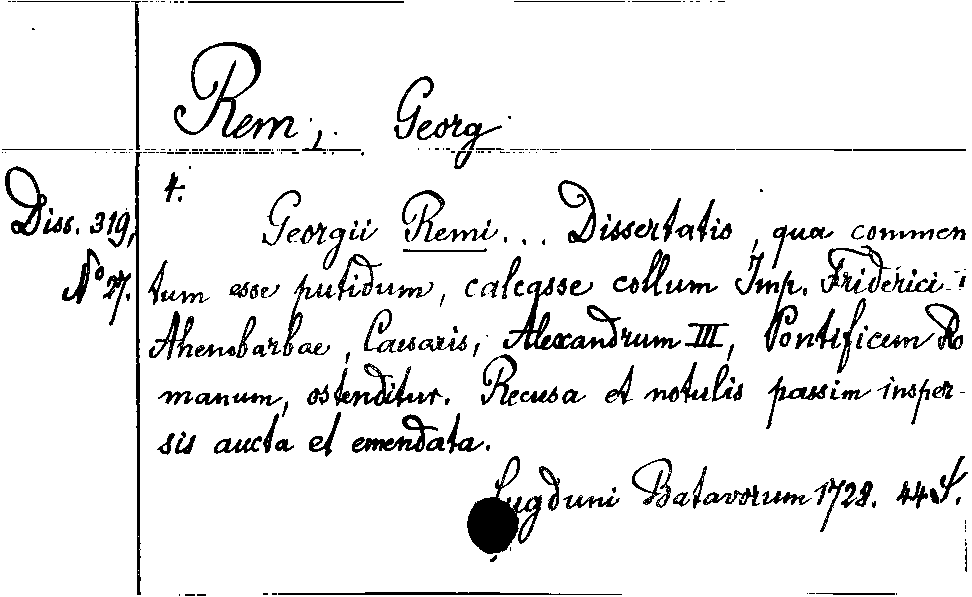 Rem, Georg
4.
Diss. 319,
No 27.
Georgii Remi... Dissertatio, qua commen
tum esse putidum, calcasse collum Imp. Friderici I
Ahenobarbae, Caesaris, Alexandrum III, Pontificem Ro
manum, ostenditur. Recusa et notulis passim insper-
sis aucta et emendata.
Lugduni Batavorum 1728. 44 S.